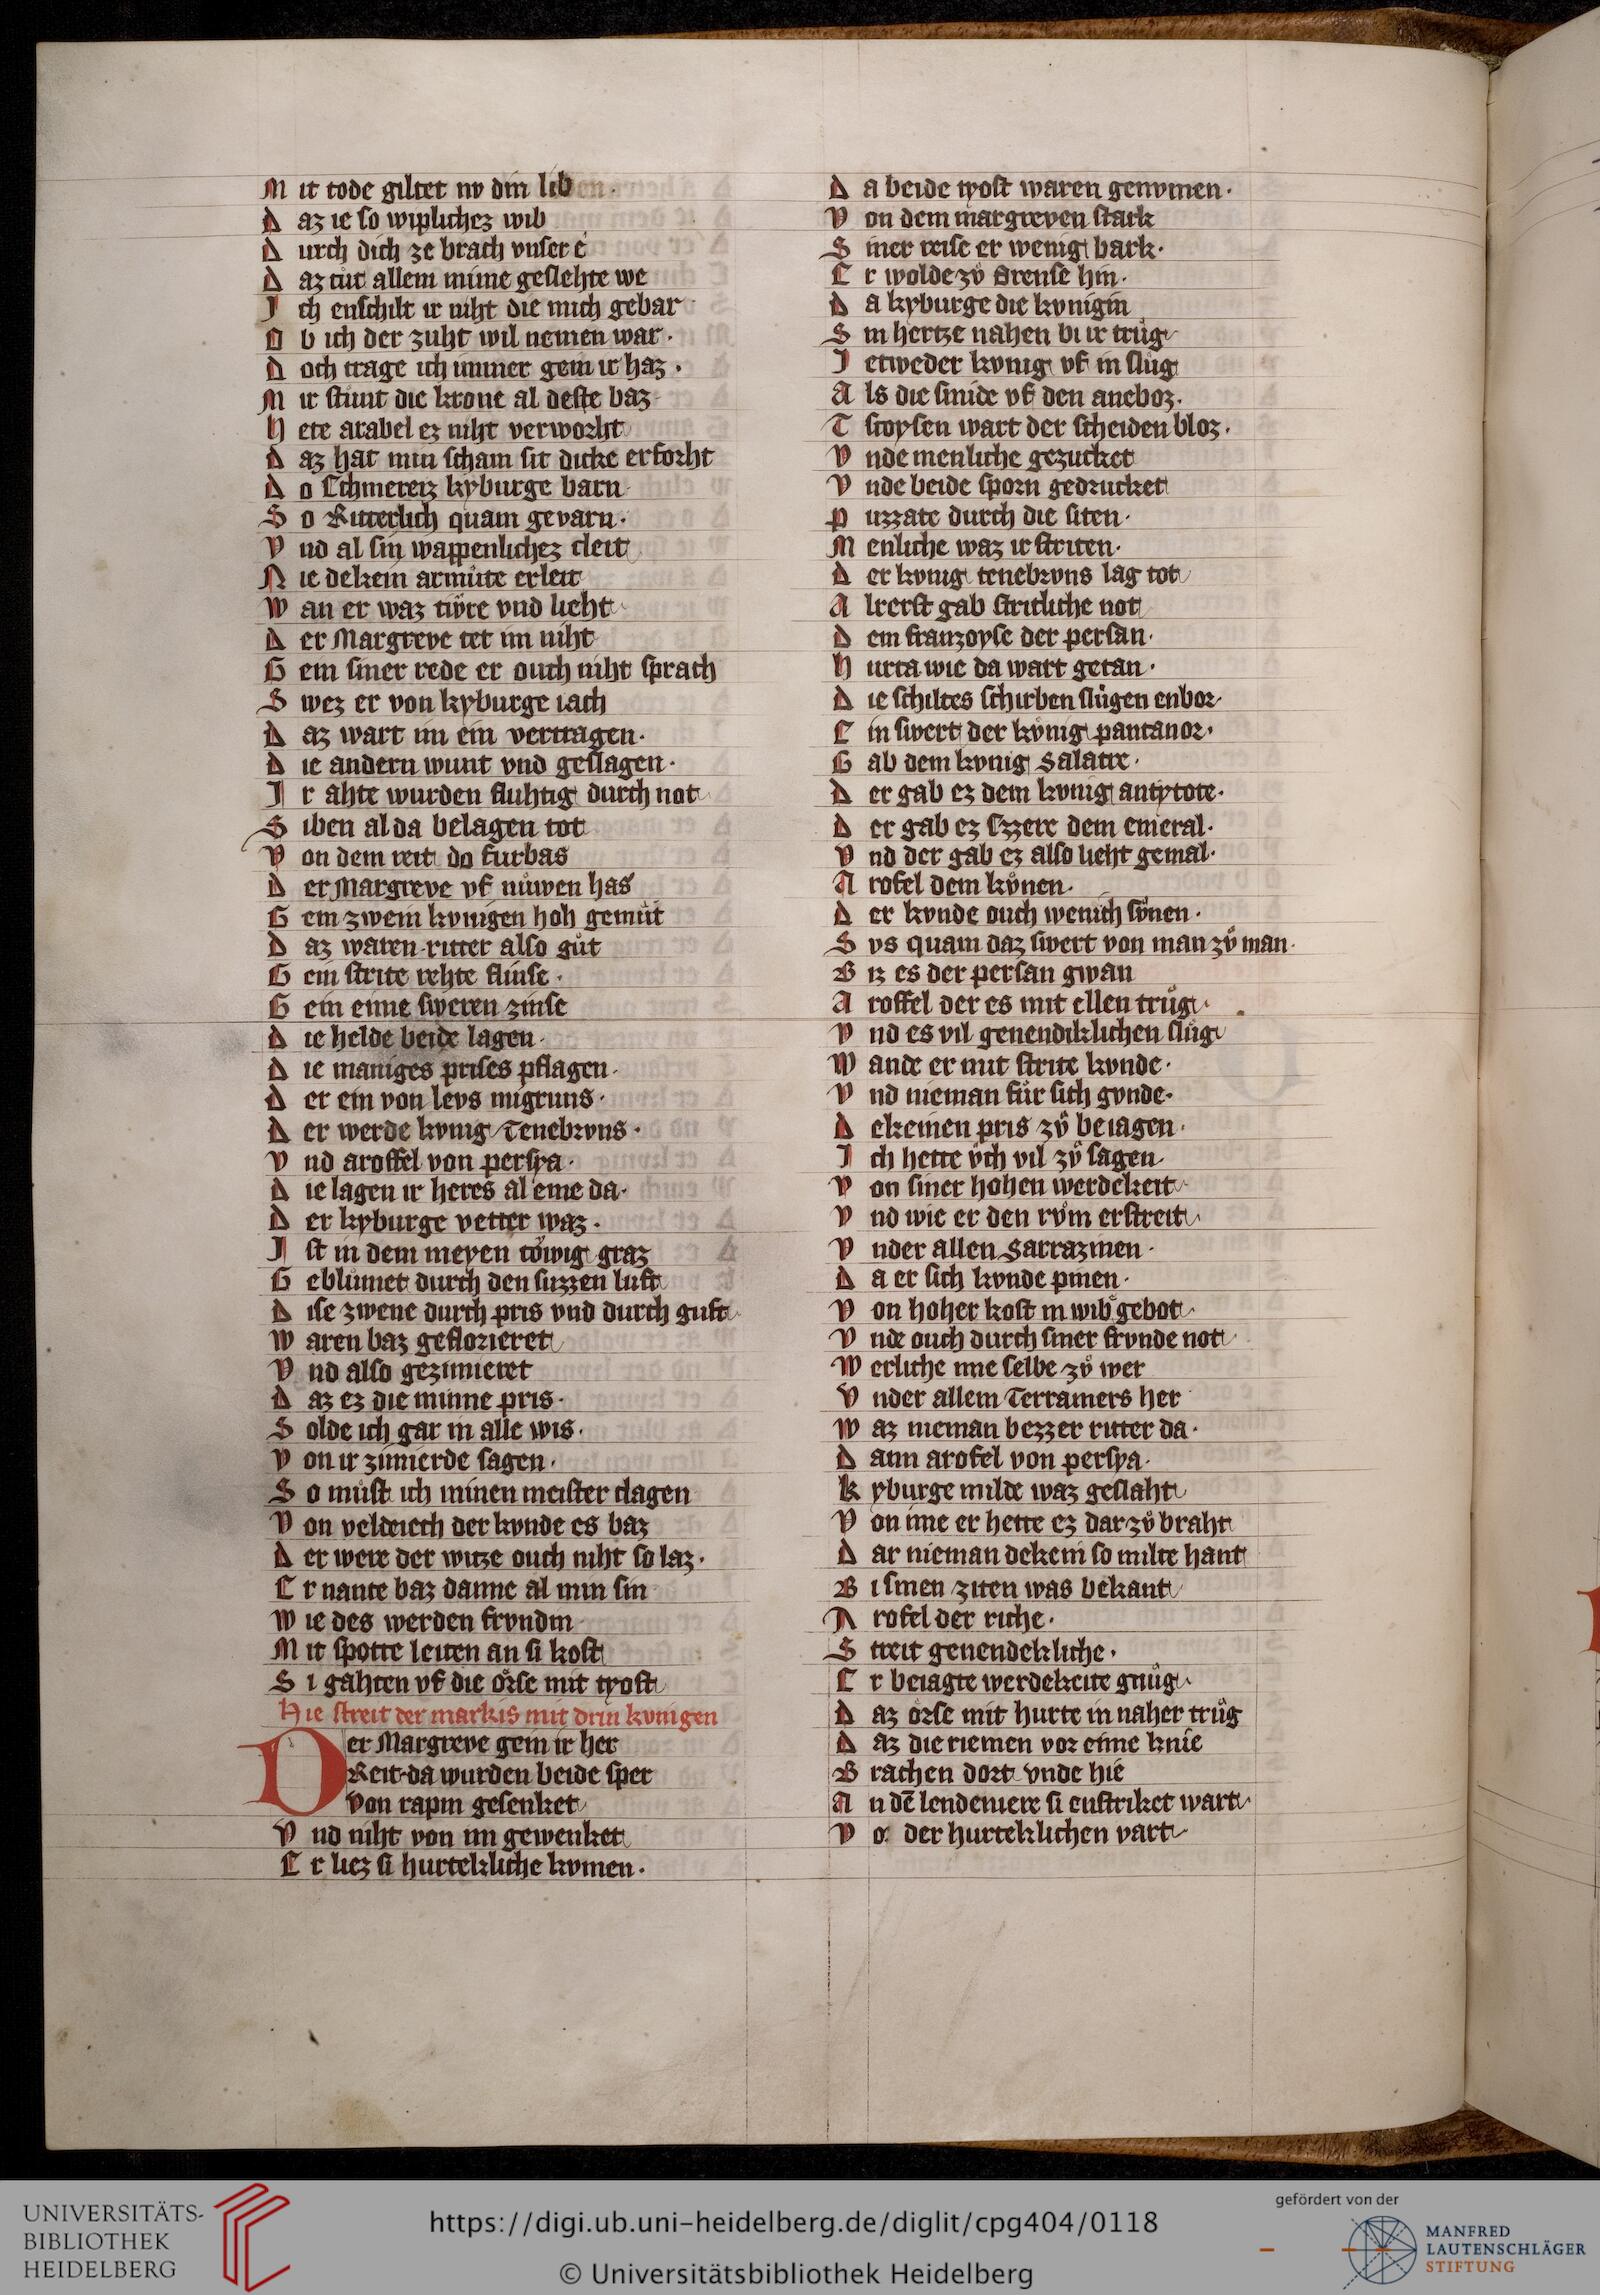 M it tode giltet nv din liben·
D az ie so wiplichez wib
D urch dich ze brach vnser e
D az tůt allem mime geslehte we
J ch enschilt ir niht die mich gebar
O b ich der zuht wil nemen war·
D och trage ich immer gein ir haz·
M ir stunt die krone al deste baz
H ete arabel ez niht verworht
D az hat min scham sit dicke erforht
D o Echmereiz kyburge barn
S o Ritterlich quam gevarn·
V nd al sin wappenlichez cleit
N ie dekein armůte erleit
W an er waz tiv̂re vnd lieht
D er Margreve tet im niht
G ein siner rede er ouch niht sprach
S wez er von kyburge iach
D az wart im ein vertragen·
D ie andern wunt vnd geslagen·
J r ahte wurden fluhtig durch not
S iben al da belagen tot
V on dem reit do furbas
D er Margreve vf nůwen has
G ein zwein kvnigen hoh gemůt
D az waren ritter also gůt
G ein strite rehte flinse·
G ein eime sweren zinse
D ie helde beide lagen·
D ie maniges prises pflagen·
D er ein von levs nugruns·
D er werde kvnig Tenebrvns·
V nd aroffel von persya·
D ie lagen ir heres al eine da·
D er kyburge vetter waz·
J st in dem meyen tǒwig graz
G eblůmet durch den suzzen luft
D ise zwene durch pris vnd durch guft
W aren baz geflorieret
V nd also gezimieret
D az ez die minne pris·
S olde ich gar in alle wis·
V on ir zimierde sagen·
S o můst ich minen meister clagen
V on veldeiech der kvnde es baz
D er were der witze ouch niht so laz·
E r nante baz danne al min sin
W ie des werden frvndin
M it spotte leiten an si kost
S i gahten vf die ǒrse mit tyost
Hie streit der markis mit drin kvnigen
Der Margreve gein ir her
Reit·da wurden beide sper
Von rapin gesenket
V nd niht von im gewenket
E r liez si hurtekliche kvmen·
D a beide tyost waren genvmen·
V on dem margreven stark
S iner reise er wenig bark·
E r wolde zů Orense hin·
D a kyburge die kvnigin
S in hertze nahen bi ir trůg
J etweder kvnig vf in slůg
A ls die smide vf den aneboz·
T scoysen wart der scheiden bloz·
V nde menliche gezucket
V nde beide sporn gedrucket
P uzzate durch die siten·
M enliche waz ir striten·
D er kvnig tenebrvns lag tot
A lrerst gab stritliche not
D em franzoyse der persan·
H urta wie da wart getan·
D ie schiltes schirben flůgen enbor
E in swert der kůnig pantanor·
G ab dem kvnig Salatre·
D er gab ez dem kvnig antytote·
D er gab ez Ezzere dem emeral·
V nd der gab ez also lieht gemal·
A rofel dem kůnen·
D er kvnde ouch wenich sůnen·
S vs quam daz swert von man zů man·
B iz es der persan gwan
A roffel der es mit ellen trůg·
V nd es vil genendiklichen slůg
W ande er mit strite kvnde·
V nd nieman fůr sich gvnde·
D ekeinen pris zů beiagen·
J ch hette v̊ch vil zů sagen·
V on siner hohen werdekeit
V nd wie er den rv̊m erstreit
V nder allen Sarrazinen·
D a er sich kvnde pinen·
V on hoher kost in wib gebot
V nde ouch durch siner frvnde not
W erliche ime selbe zů wer
V nder allem Terramers her
W az nieman bezzer ritter da·
D ann arofel von persya·
K yburge milde waz geslaht
V on ime er hette ez dar zů braht
D ar nieman dekein so milte hant
B i sinen ziten was bekant
A rofel der riche·
S treit genendekliche·
E r beiagte werdekeite gnůg
D az ǒrse mit hurte in naher trůg
D az die riemen vor eime knie
B rachen dort vnde hie
A n dē lendeniere si enstriket wart
V o der hurteklichen vart
UNIVERSITÄTS-
BIBLIOTHEK
HEIDELBERG
https://digi.ub.uni-heidelberg.de/diglit/cpg404/0118
© Universitätsbibliothek Heidelberg
gefördert von der
MANFRED
LAUTENSCHLÄGER
STIFTUNG